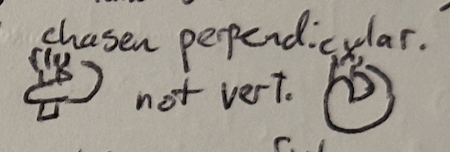 chosen perpendicular.
not vert.